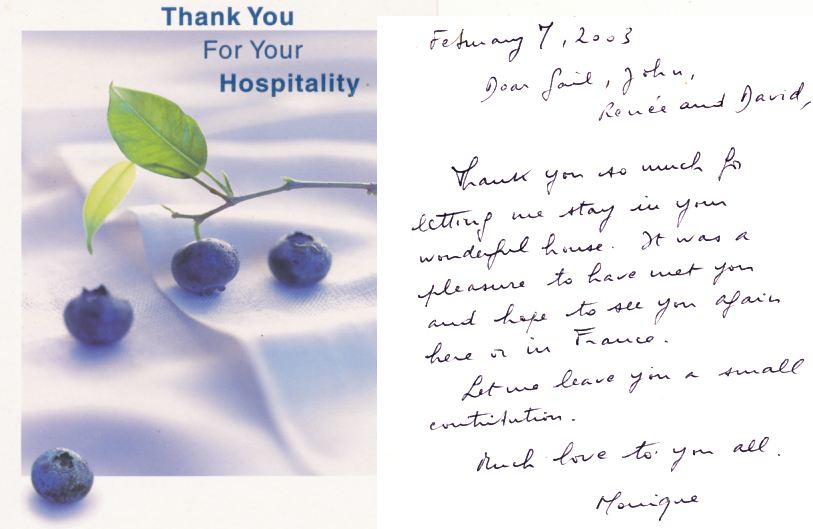 Thank You
For Your
Hospitality
February 7, 2003
Dear Gail, John,
Renée and David,
Thank you so much for
letting me stay in your
wonderful house. It was a
pleasure to have met you
and hope to see you again
here or in France.
Let me leave you a small
contribution.
Much love to you all.
Monique